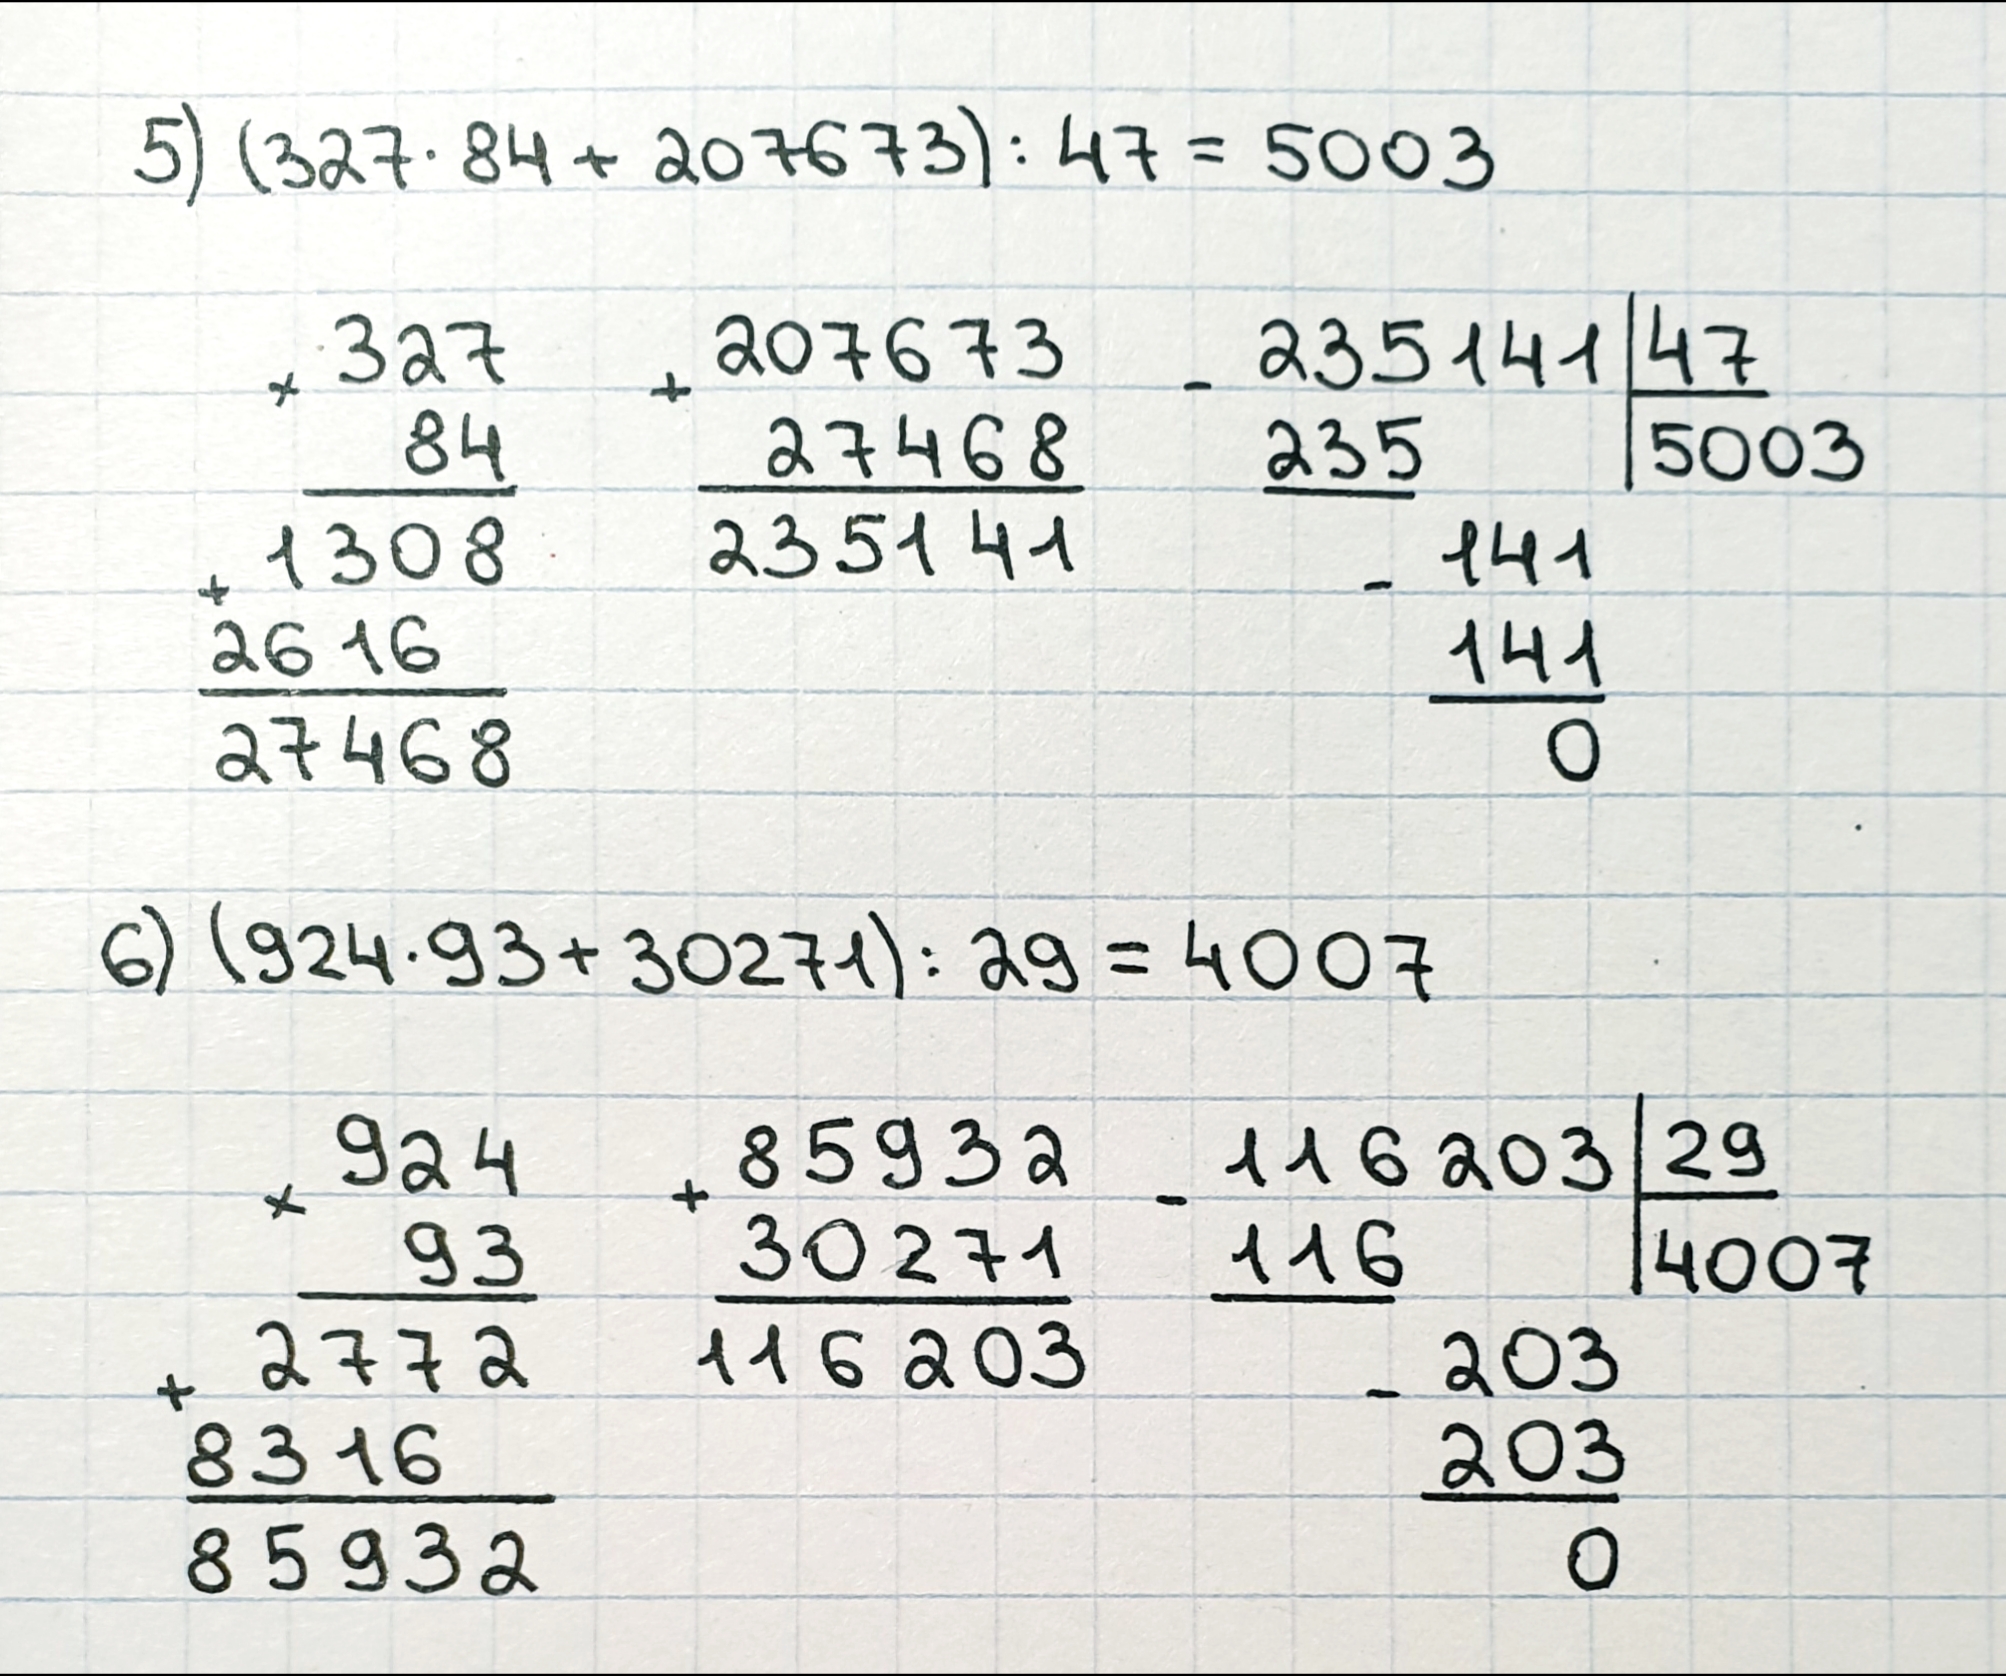 5) (327·84+207673):47=5003
× 327   + 207673   - 235141|47
84   27468   235   |5003
1308   235141   - 141
+ 2616   141
27468   0
6) (924·93+30271):29=4007
× 924   + 85932   - 116203|29
93   30271   116   |4007
2772   116203   - 203
+ 8316   203
85932   0